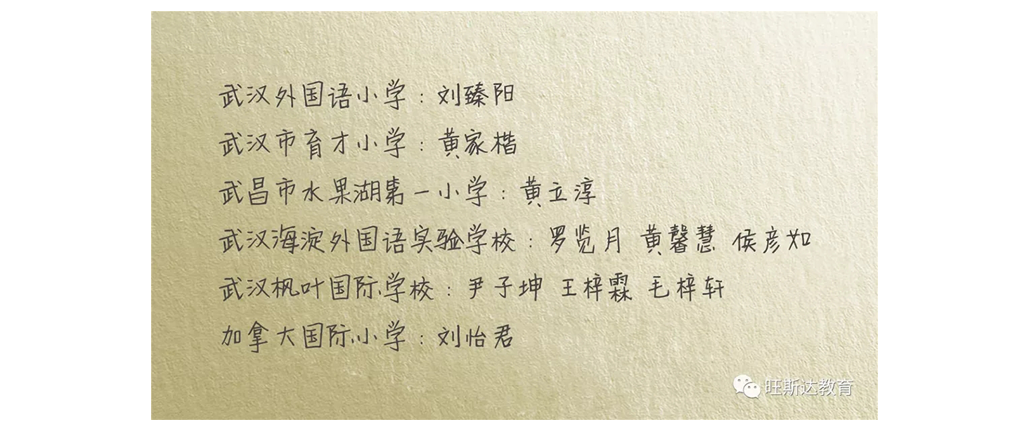 武汉外国语小学：刘臻阳
武汉市育才小学：黄家楷
武昌市水果湖第一小学：黄立淳
武汉海淀外国语实验学校：罗览月 黄馨慧 侯彦如
武汉枫叶国际学校：尹子坤 王梓霖 毛梓轩
加拿大国际小学：刘怡君
旺斯达教育